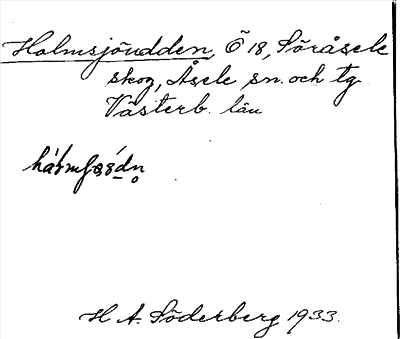 Holmsjöudden, Ö 18, Söråsele
skog, Åsele sn. och tg
Västerb. län
H A. Söderberg 1933.